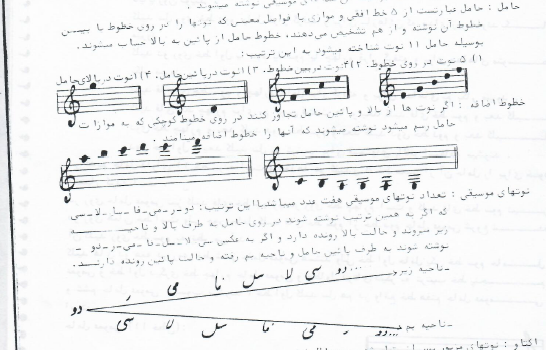 حامل : حامل عبارتست از ۵ خط افقی و موازی با فواصل معینی که نوتها را در روی خطوط یا بین
خطوط آن نوشته و از هم تشخیص می‌دهند، خطوط حامل از پائین به بالا حساب میشوند.
بوسیله حامل ۱۱ نوت شناخته میشود به این ترتیب :
۱) ۵ نوت در روی خطوط. ۲) ۴نوت در بین خطوط. ۳) ۱نوت در پائین حامل. ۴) ۱نوت در بالای حامل
خطوط اضافه : اگر نوت ها از بالا و پائین حامل تجاوز کنند در روی خطوط کوچکی که به موازات
حامل رسم میشود نوشته میشوند که آنها را خطوط اضافه مینامند .
نوتهای موسیقی : تعداد نوتهای موسیقی هفت عدد میباشد با این ترتیب : دو-ر-می-فا-سل-لا-سی
که اگر به همین ترتیب نوشته شوند در روی حامل به طرف بالا و ناحیه
زیر میروند و حالت بالا رونده دارد و اگر به عکس سی-لا-سل-فا-می-ر-دو
نوشته شوند به طرف پائین حامل و ناحیه بم رفته و حالت پائین رونده دارند.
دو ر می فا سل لا سی دو... -ناحیه زیر
سی لا سل فا می ر دو... -ناحیه بم